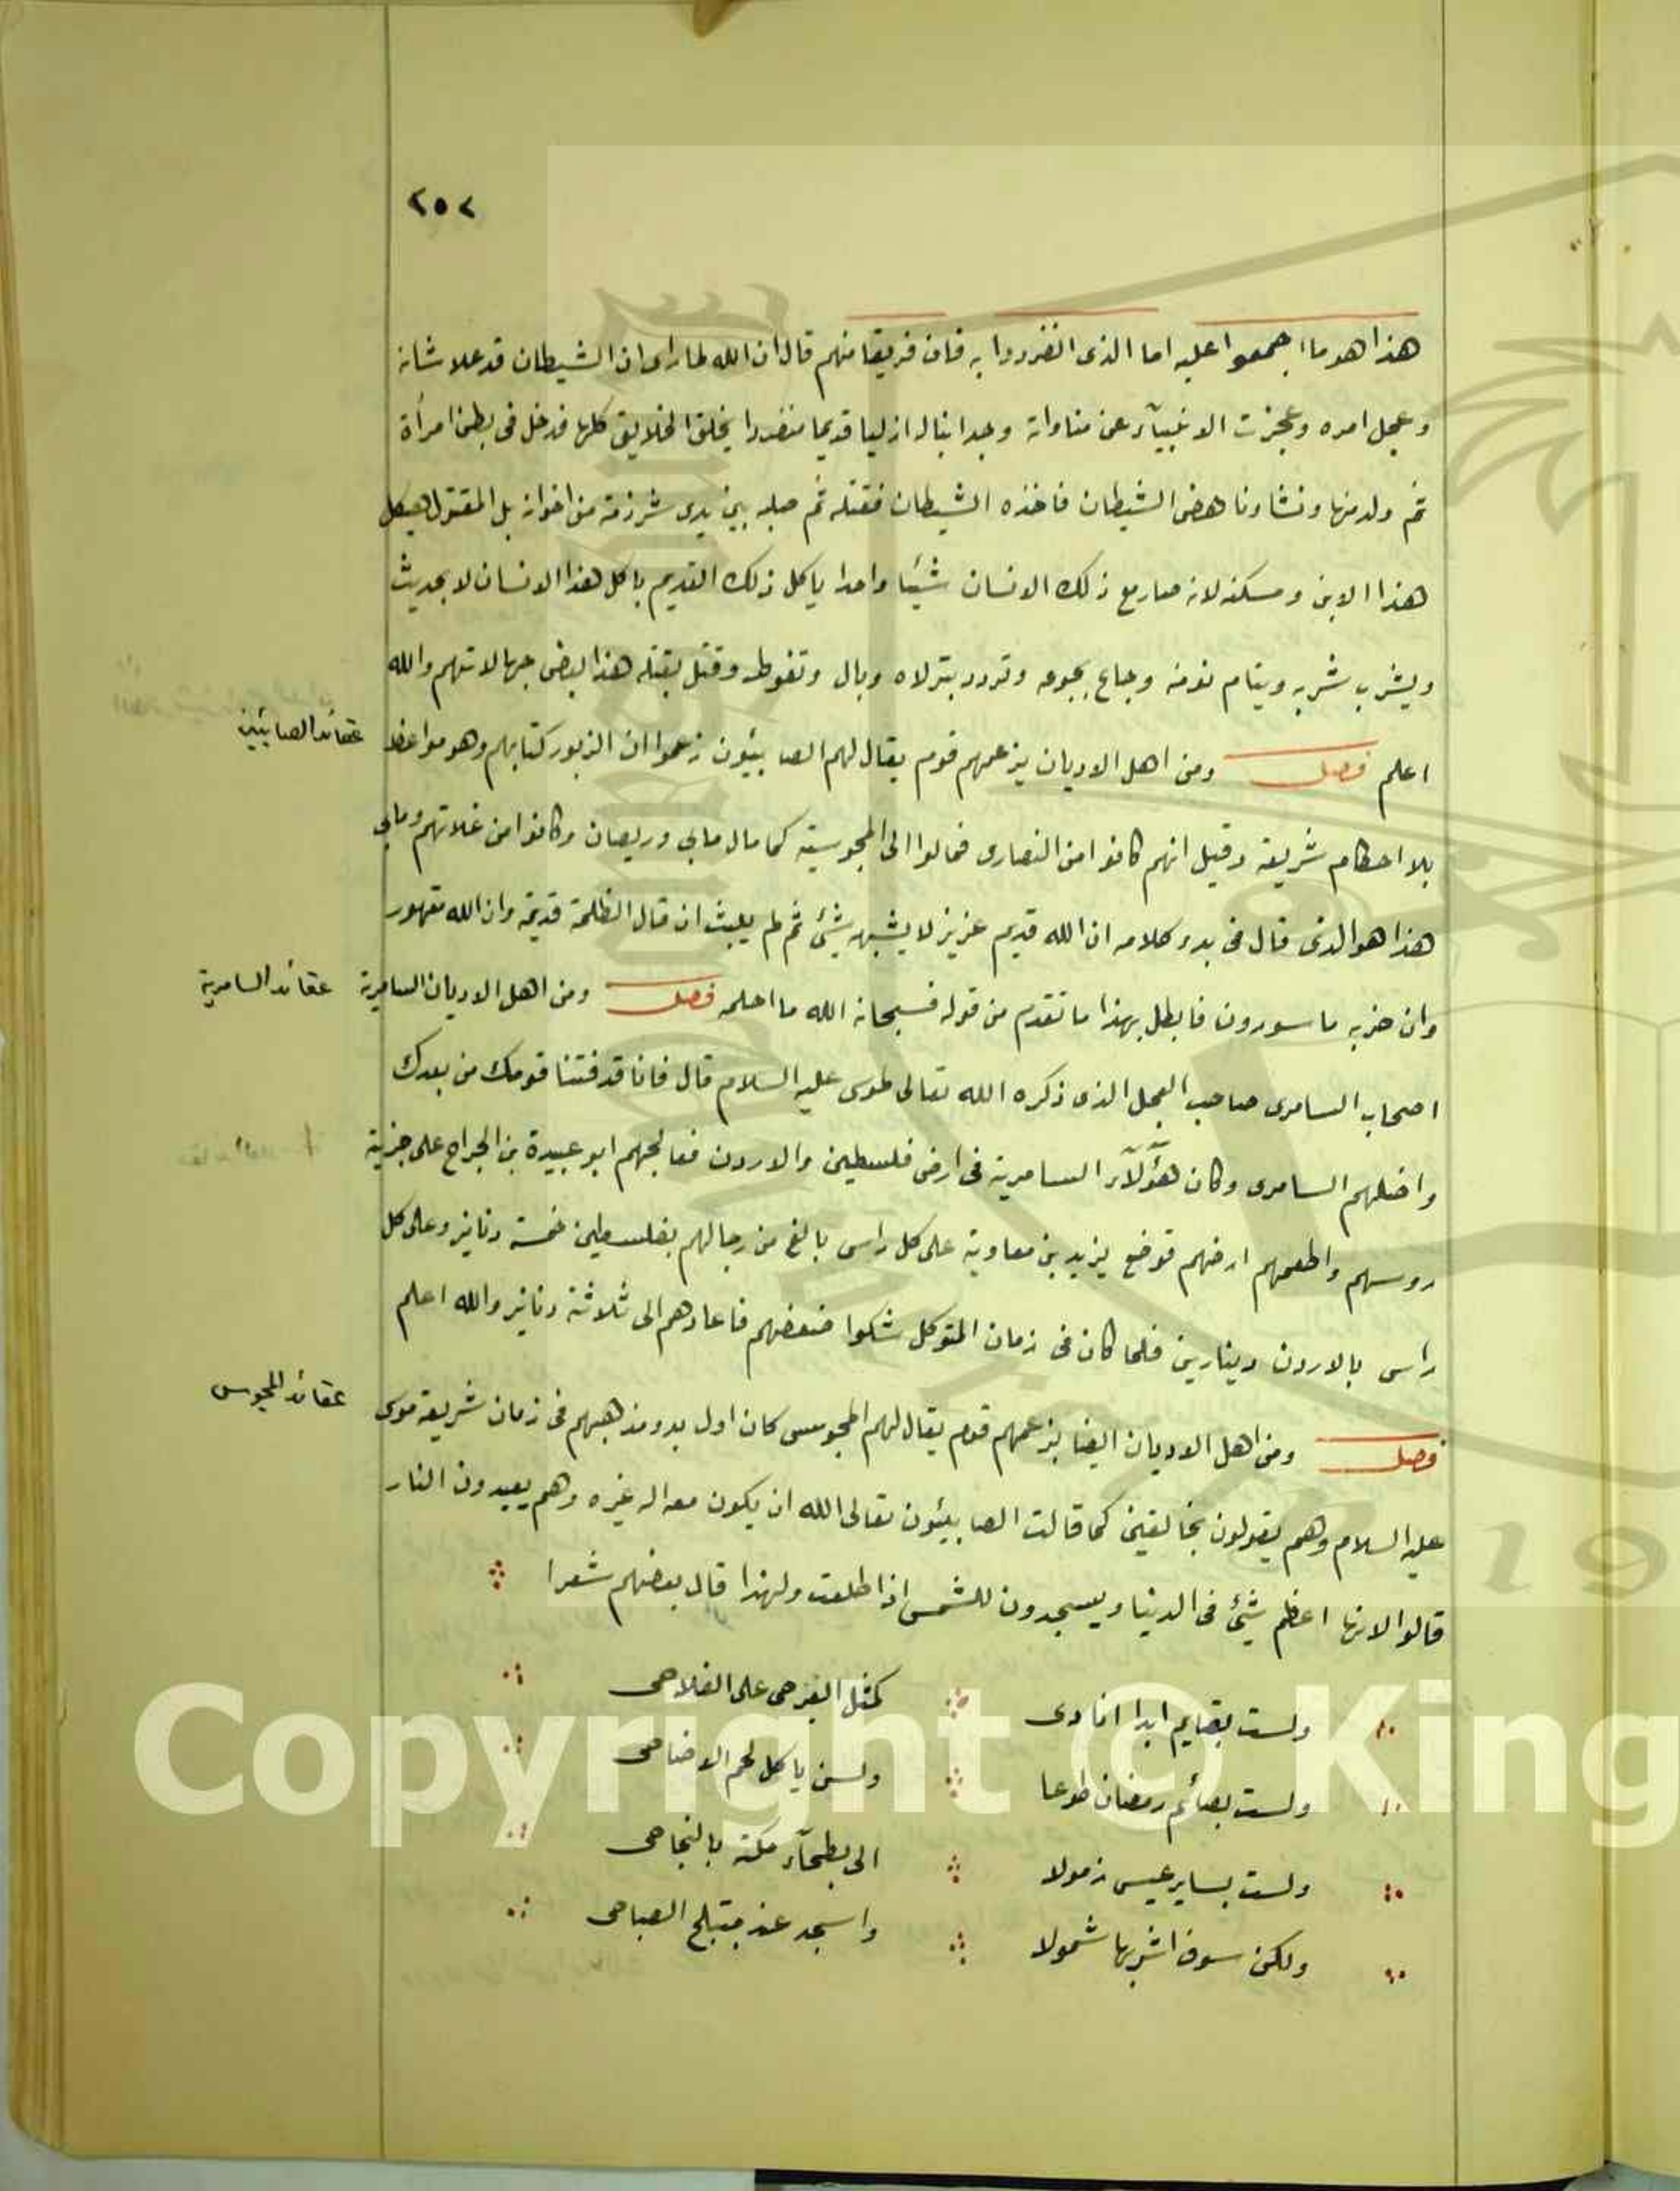 ٢٥٢
هذا هو ما اجمعوا عليه اما الذى انفردوا به فان فريقا منهم قال ان الله لما راى ان الشيطان قد علا شانه
وعجل امره وعجزت الانبيآء عن مناواته وجد ابنا له ازليا قديما منفردا بخلق الخلايق كلها فدخل فى بطن امرأة
ثم ولد منها ونشا وناهض الشيطان فاخذه الشيطان فقتله ثم صلبه بين يدى شرذمة من اخوانه بل المقتول هيكل
هذا الابن ومسكنه لانه صار مع ذلك الانسان شيئا واحدا ياكل ذلك القديم باكل هذا الانسان لا بحديث
ويشرب بشربه وينام نومه وجاع بجوعه وتردد وبال وتغوط وقتل بقتله هذا بعض جهالاتهم والله
اعلم فصل ومن اهل الاديان بزعمهم قوم يقال لهم الصابيئون زعموا ان الزبور كتابهم وهو مواعظ
عقائد الصابئين
بلا احكام شريعة وقيل انهم كانوا من النصارى فمالوا الى المجوسية كما مال مانى وريصان وكانوا من غلاتهم ومانى
هذا هو الذى قال فى بدء كلامه ان الله قديم عزيز لا يشبهه شئ ثم لم يلبث ان قال الظلمة قديمة وان الله مقهور
وان حزبه ماسورون فابطل بهذا ما تقدم من قوله فسبحانه الله ما احلمه فصل ومن اهل الاديان السامرية
عقائد السامرية
اصحاب السامرى صاحب العجل الذى ذكره الله تعالى لموسى عليه السلام قال فانا قد فتنا قومك من بعدك
واضلهم السامرى وكان هؤلآء السامرية فى ارض فلسطين والاردن فصالحهم ابو عبيدة بن الجراح على جزية
روسهم واطعمهم ارضهم فوضع يزيد بن معاوية على كل راس بالغ من رجالهم بفلسطين خمسة دنانير وعلى كل
راس بالاردن دينارين فلما كان فى زمان المتوكل شكوا ضعفهم فاعادهم الى ثلاثة دنانير والله اعلم
فصل ومن اهل الاديان ايضا بزعمهم قوم يقال لهم المجوس كان اول بدو مذهبهم فى زمان شريعة موسى
عقائد المجوس
عليه السلام وهم يقولون بخالقين كما قالت الصابيئون تعالى الله ان يكون معه اله غيره وهم يعبدون النار
قالوا لانها اعظم شئ فى الدنيا ويسجدون للشمس اذا طلعت ولهذا قال بعضهم شعرا
ولست بقايم ابدا انادى كمثل العير حى على الفلاحى
ولست بصائم رمضان طوعا ولست باكل لحم الاضاحى
ولست بساير عيس زمولا الى بطحآء مكة بالنجاحى
ولكن سوف اشربها شمولا واسجد عند مبتلج الصباحى
Copyright © King